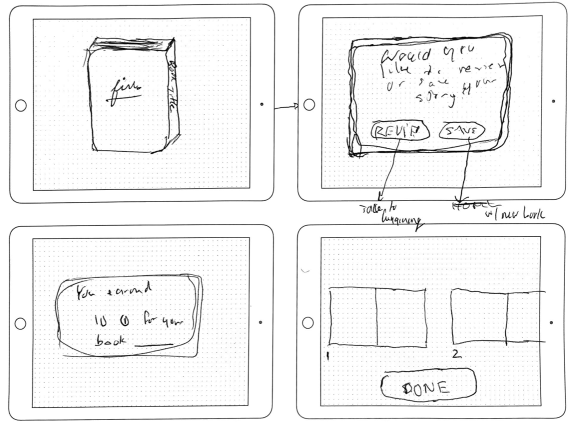 fin
Book Title
Would you
like to review
or save your
story
REVIEW
SAVE
Takes to
beginning
w/ new book
You earned
10 for your
book
1
2
DONE